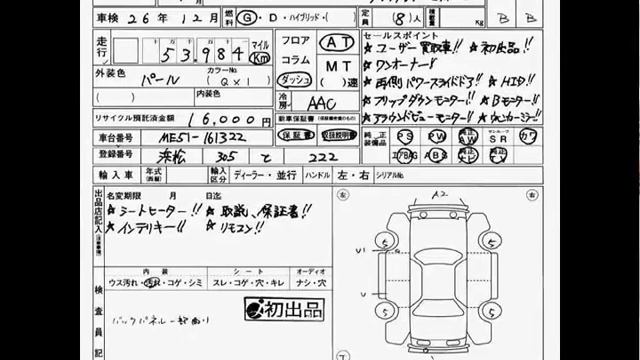 車検 26年 12月 燃料 Ⓖ・D・ハイブリッド・( ) 定員 (8)人 積載量 Kg B B
走行 53,984 マイル Km
フロア コラム ダッシュ AT MT ( )速
セールスポイント
★ユーザー買取車!! ★初出品!!
★ワンオーナー!!
★両側パワースライドドア!! ★HID!!
★フリップダウンモニター!! ★Bモニター!!
★アラウンドビューモニター!! ★ウィンカーミラー!!
外装色 パール カラーNo (QX1)
( ) 内装色
冷房 AAC
リサイクル預託済金額 16,000円
新車保証書 保証書 取扱説明書
純正装備品 PS PW 純正AW サンルーフ SR カワ
エアBAG ABS 純正ナビ 純正TV
車台番号 ME51-161322
登録番号 浜松 305 て 222
輸入車 年式 輸入区分 ディーラー・並行 ハンドル 左・右 シリアルNo
出品店記入 名変期限 月 日迄
★シートヒーター!! ★取説、保証書!!
★インテリキー!! ★リモコン!!
内装 シート オーディオ
ウス汚れ・汚れ・コゲ・シミ スレ・コゲ・穴・キレ ナシ・穴
初出品
検査員記
左 A2 右
S S
U1
U
S S